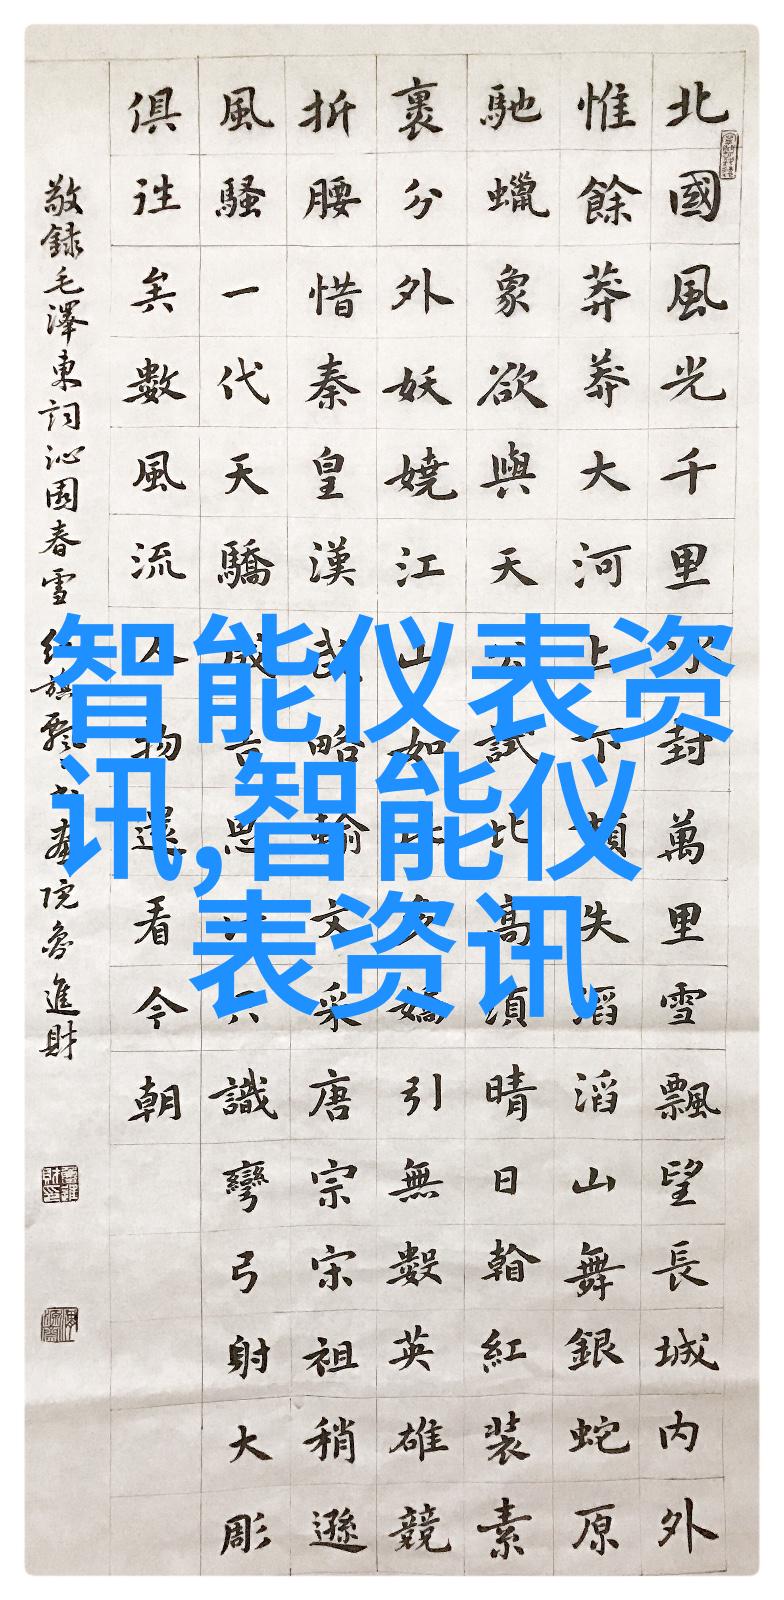 北國風光千里冰封萬里雪飄望長城内外
惟餘莽莽大河上下頓失滔滔山舞銀蛇原
馳蠟象欲與天公試比高須晴日翰紅裝素
裹分外妖嬈江山如此多嬌引無數英雄競
折腰惜秦皇漢武略輸文采唐宗宋祖稍遜
風騷一代天驕成吉思汗只識彎弓射大彫
俱往矣數風流人物還看今朝
敬録毛澤東詞沁園春雪 紅旗飄飄书畫院魯進財
智能仪表资
讯,智能仪
表资讯